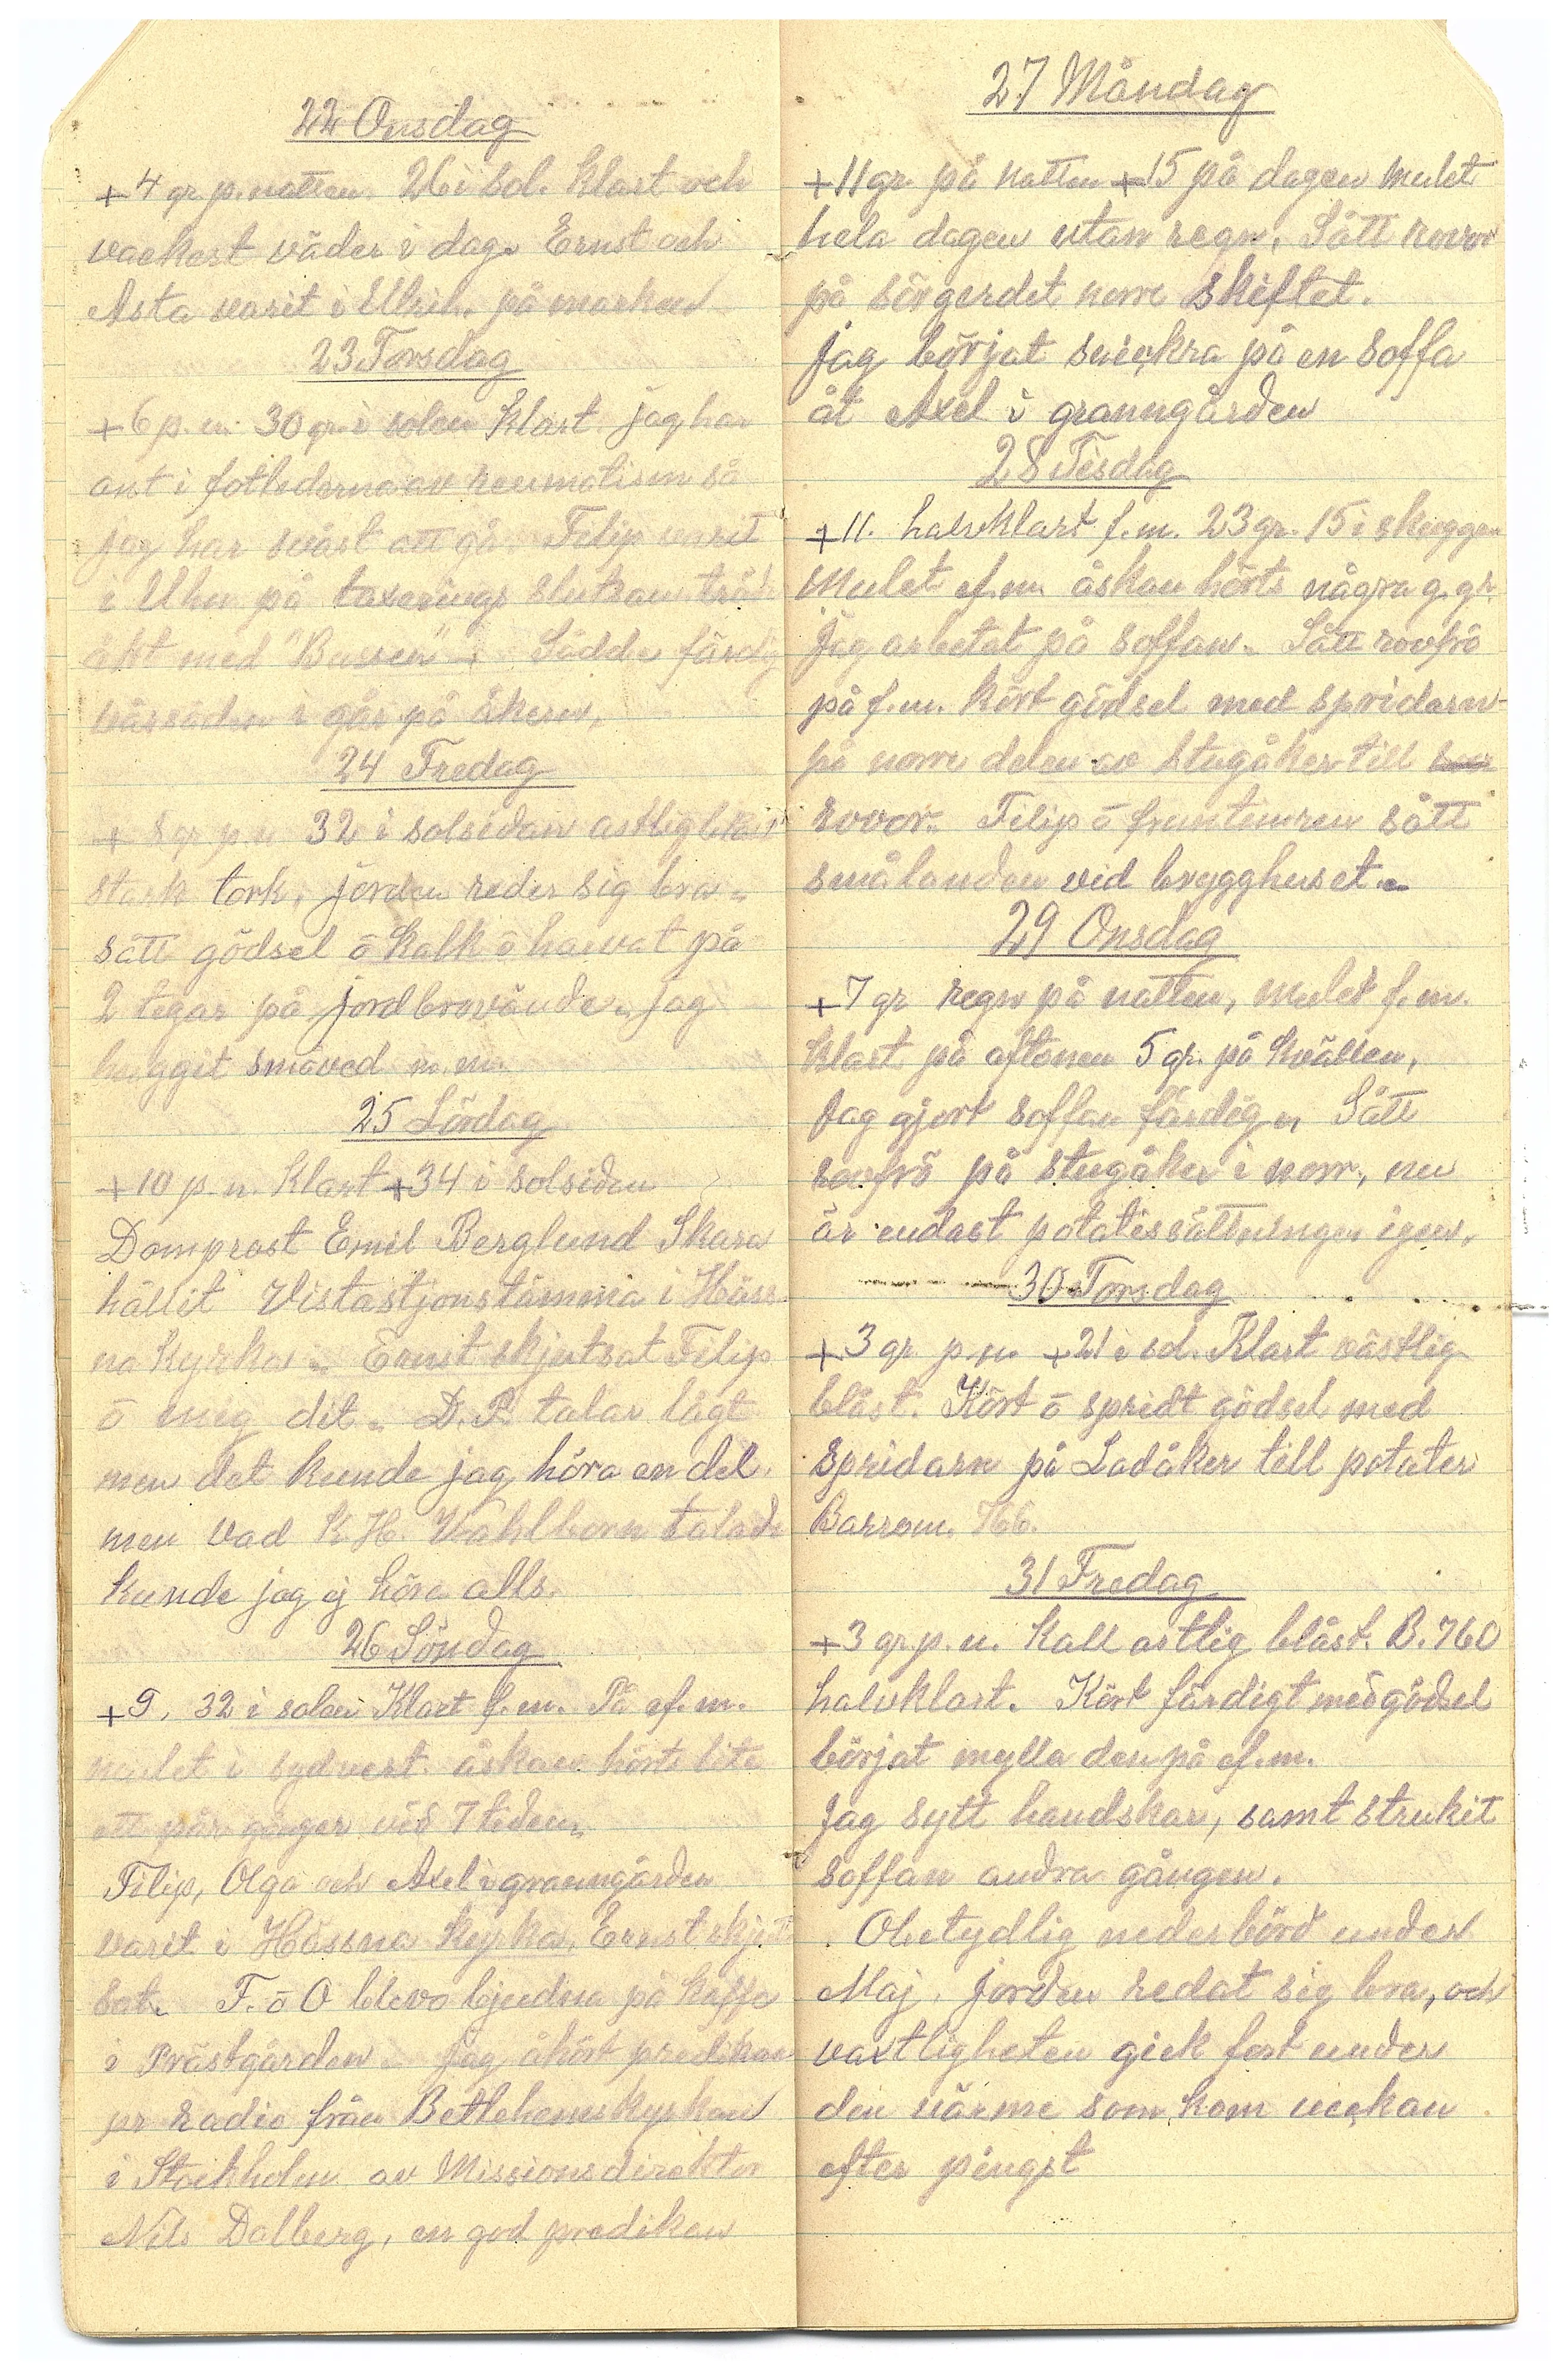 22 Onsdag
+4 gr p. natten. 26 i sol. Klart och
vackert väder i dag. Ernst och
Asta varit i Ulrich. på marken
23 Torsdag
+6 p. n. 30 gr. i solen Klart. jag har
ont i fotlederna av reumatism så
jag har svårt att gå. Filip varit
i Uhn på taxerings
åkt med "Bussen" Sådde färdig
vårsäden i går på åkern.
24 Fredag
+ 8 gr p n 32 i solsidan ostlig blåst
stark tork, jorden reder sig bra.
sått gödsel ō Kalk ō harvat på
2 tegar på jordbrovände. jag
hugget småved m. m.
25 Lördag
+10 p. n. Klart +34 i solsiden
Domprost Emil Berglund Skara
hållit Vistastjonstämma i Häss
na Kyrka. Ernst skjutsat Filip
ō mig dit. D. P. talar lågt
men det kunde jag höra en del.
men vad K. H. Vahlborn talade
kunde jag ej höra alls.
26 Söndag
+9. 32 i solen Klart f. m. På ef. m.
mulet i sydvest. åskan hörts lite
ett par gånger vid 7 tiden.
Filip, Olga och Axel i granngården
varit i Hässna Kyrka. Ernst skjut
sat. F. ō O blevo bjudna på kaffe
i Prästgården. Jag åhört predikan
pr radio från Betlehemskyrkan
i Stockholm av Missionsdirektor
Nils Dalberg, en god predikan
27 Måndag
+11 gr. på natten +15 på dagen mulet
hela dagen utan regn. Sått rovor
på sörgerdet norre skiftet.
jag börjat snickra på en soffa
åt Axel i granngården
28 Tisdag
+11. halvklart f. m. 23 gr. 15 i skuggen
Mulet ef. m. åskan hörts några g. gr.
Jag arbetat på soffan. Sått rovfrö
på f. m. kört gödsel med spridarn
på norre delen av stugåker till
rovor. Filip ō fruntimren sått
smålanden vid brygghuset.
29 Onsdag
+7 gr regn på natten, mulet f. m.
klart på aftonen 5 gr. på kvällen,
Jag gjort soffan färdig, Sått
rovfrö på stugåker i norr, nu
är endast potatissättningen igen.
30 Torsdag
+3 gr p. n. +21 i sol. Klart västlig
blåst. Kört ō spridt gödsel med
spridarn på Ladåker till potater
Barrom. 766.
31 Fredag
+3 gr. p. n. Kall ostlig blåst. B. 760
halvklart. Kört färdigt med gödsel
börjat mylla den på ef. m.
Jag sytt handskar, samt strukit
soffan andra gången.
Obetydlig nederbörd under
Maj. jorden redat sig bra, och
vaxtligheten gick fort under
den värme som kom veckan
efter pingst